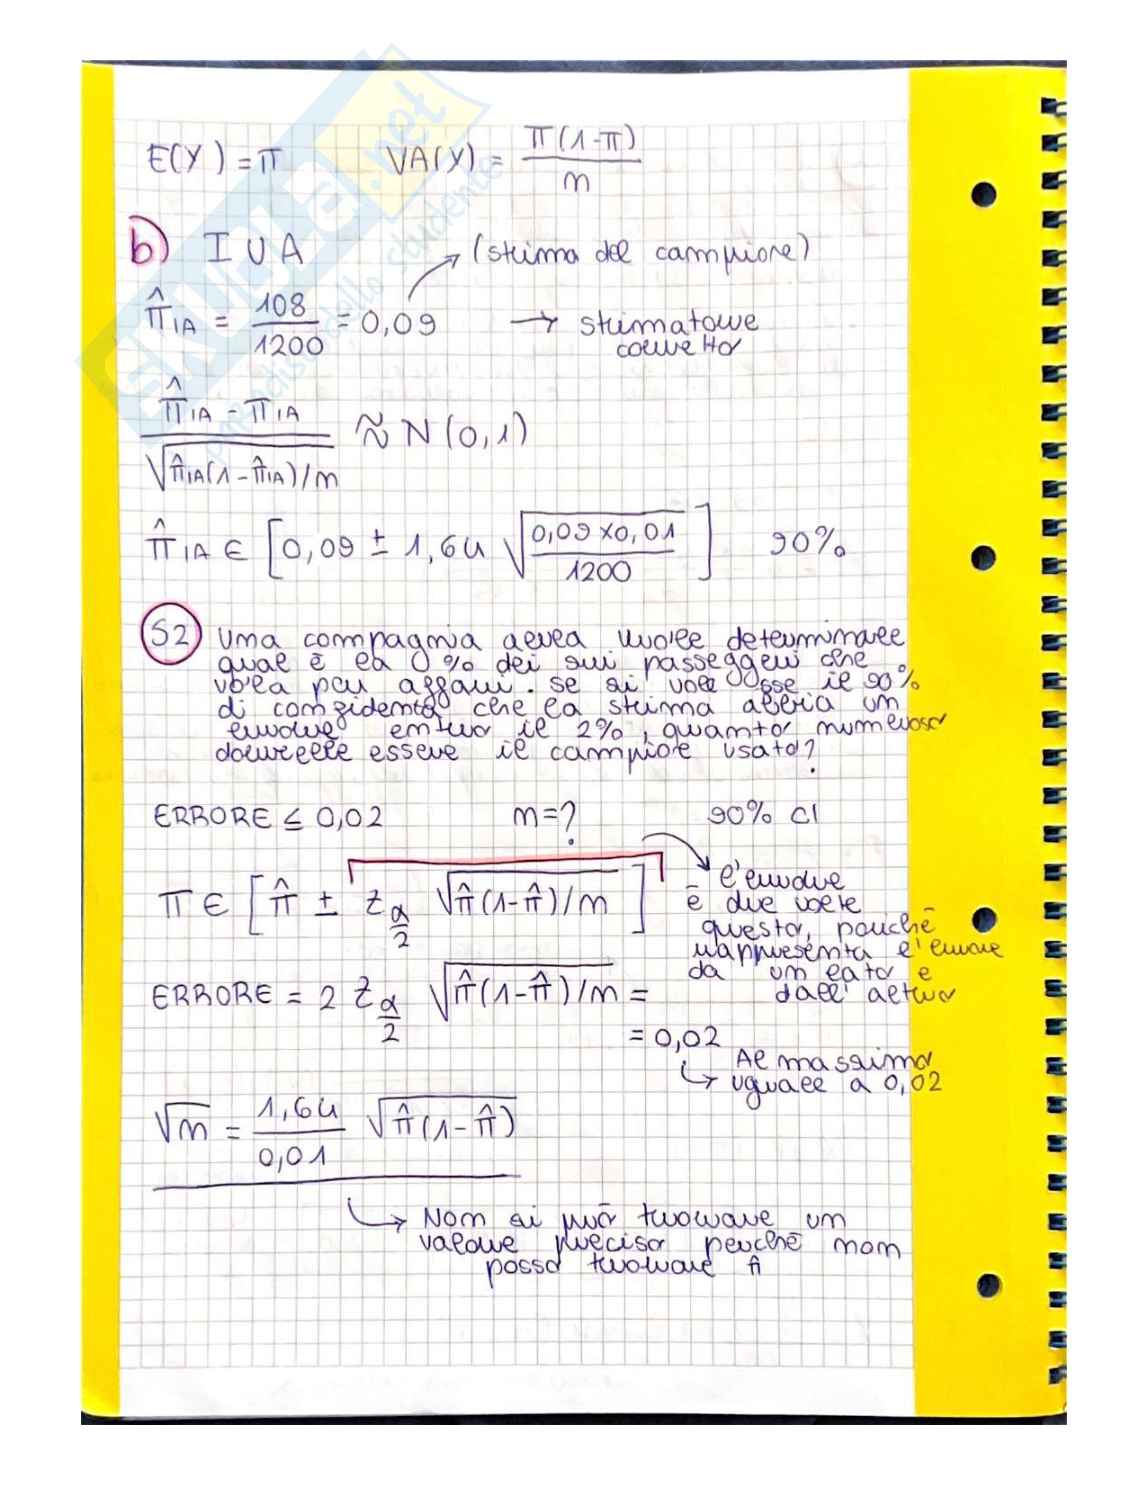 E(Y) = π VA(Y) = π(1-π) / n
b) IVA
(stima del campione)
π̂IA = 108/1200 = 0,09 → stimatore
corretto
π̂IA - πIA / √π̂IA(1-π̂IA)/n ≈ N(0,1)
π̂IA ∈ [0,09 ± 1,64 √0,09×0,01/1200] 90%
52) Una compagnia aerea vuole determinare
quale è la % dei sui passeggeri che
vola per affari. se si vole sse il 90%
di confidenta che la stima abbia un
errore entro il 2%, quanto numeroso
dovrebbe essere il campione usato?
ERRORE ≤ 0,02 n=? 90% CI
π ∈ [π̂ ± zα/2 √π̂(1-π̂)/n]
l'errore
è due volte
questo, perché
rappresenta l'errore
da un lato e
dall'altro
ERRORE = 2 zα/2 √π̂(1-π̂)/n =
= 0,02
Al massimo
uguale a 0,02
√n = 1,64/0,01 √π̂(1-π̂)
Non si può trovare un
valore preciso perché non
posso trovare π̂
SKUOLA.net